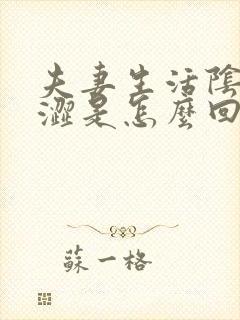 夫妻生活陰
澀是怎麼回
蘇一格